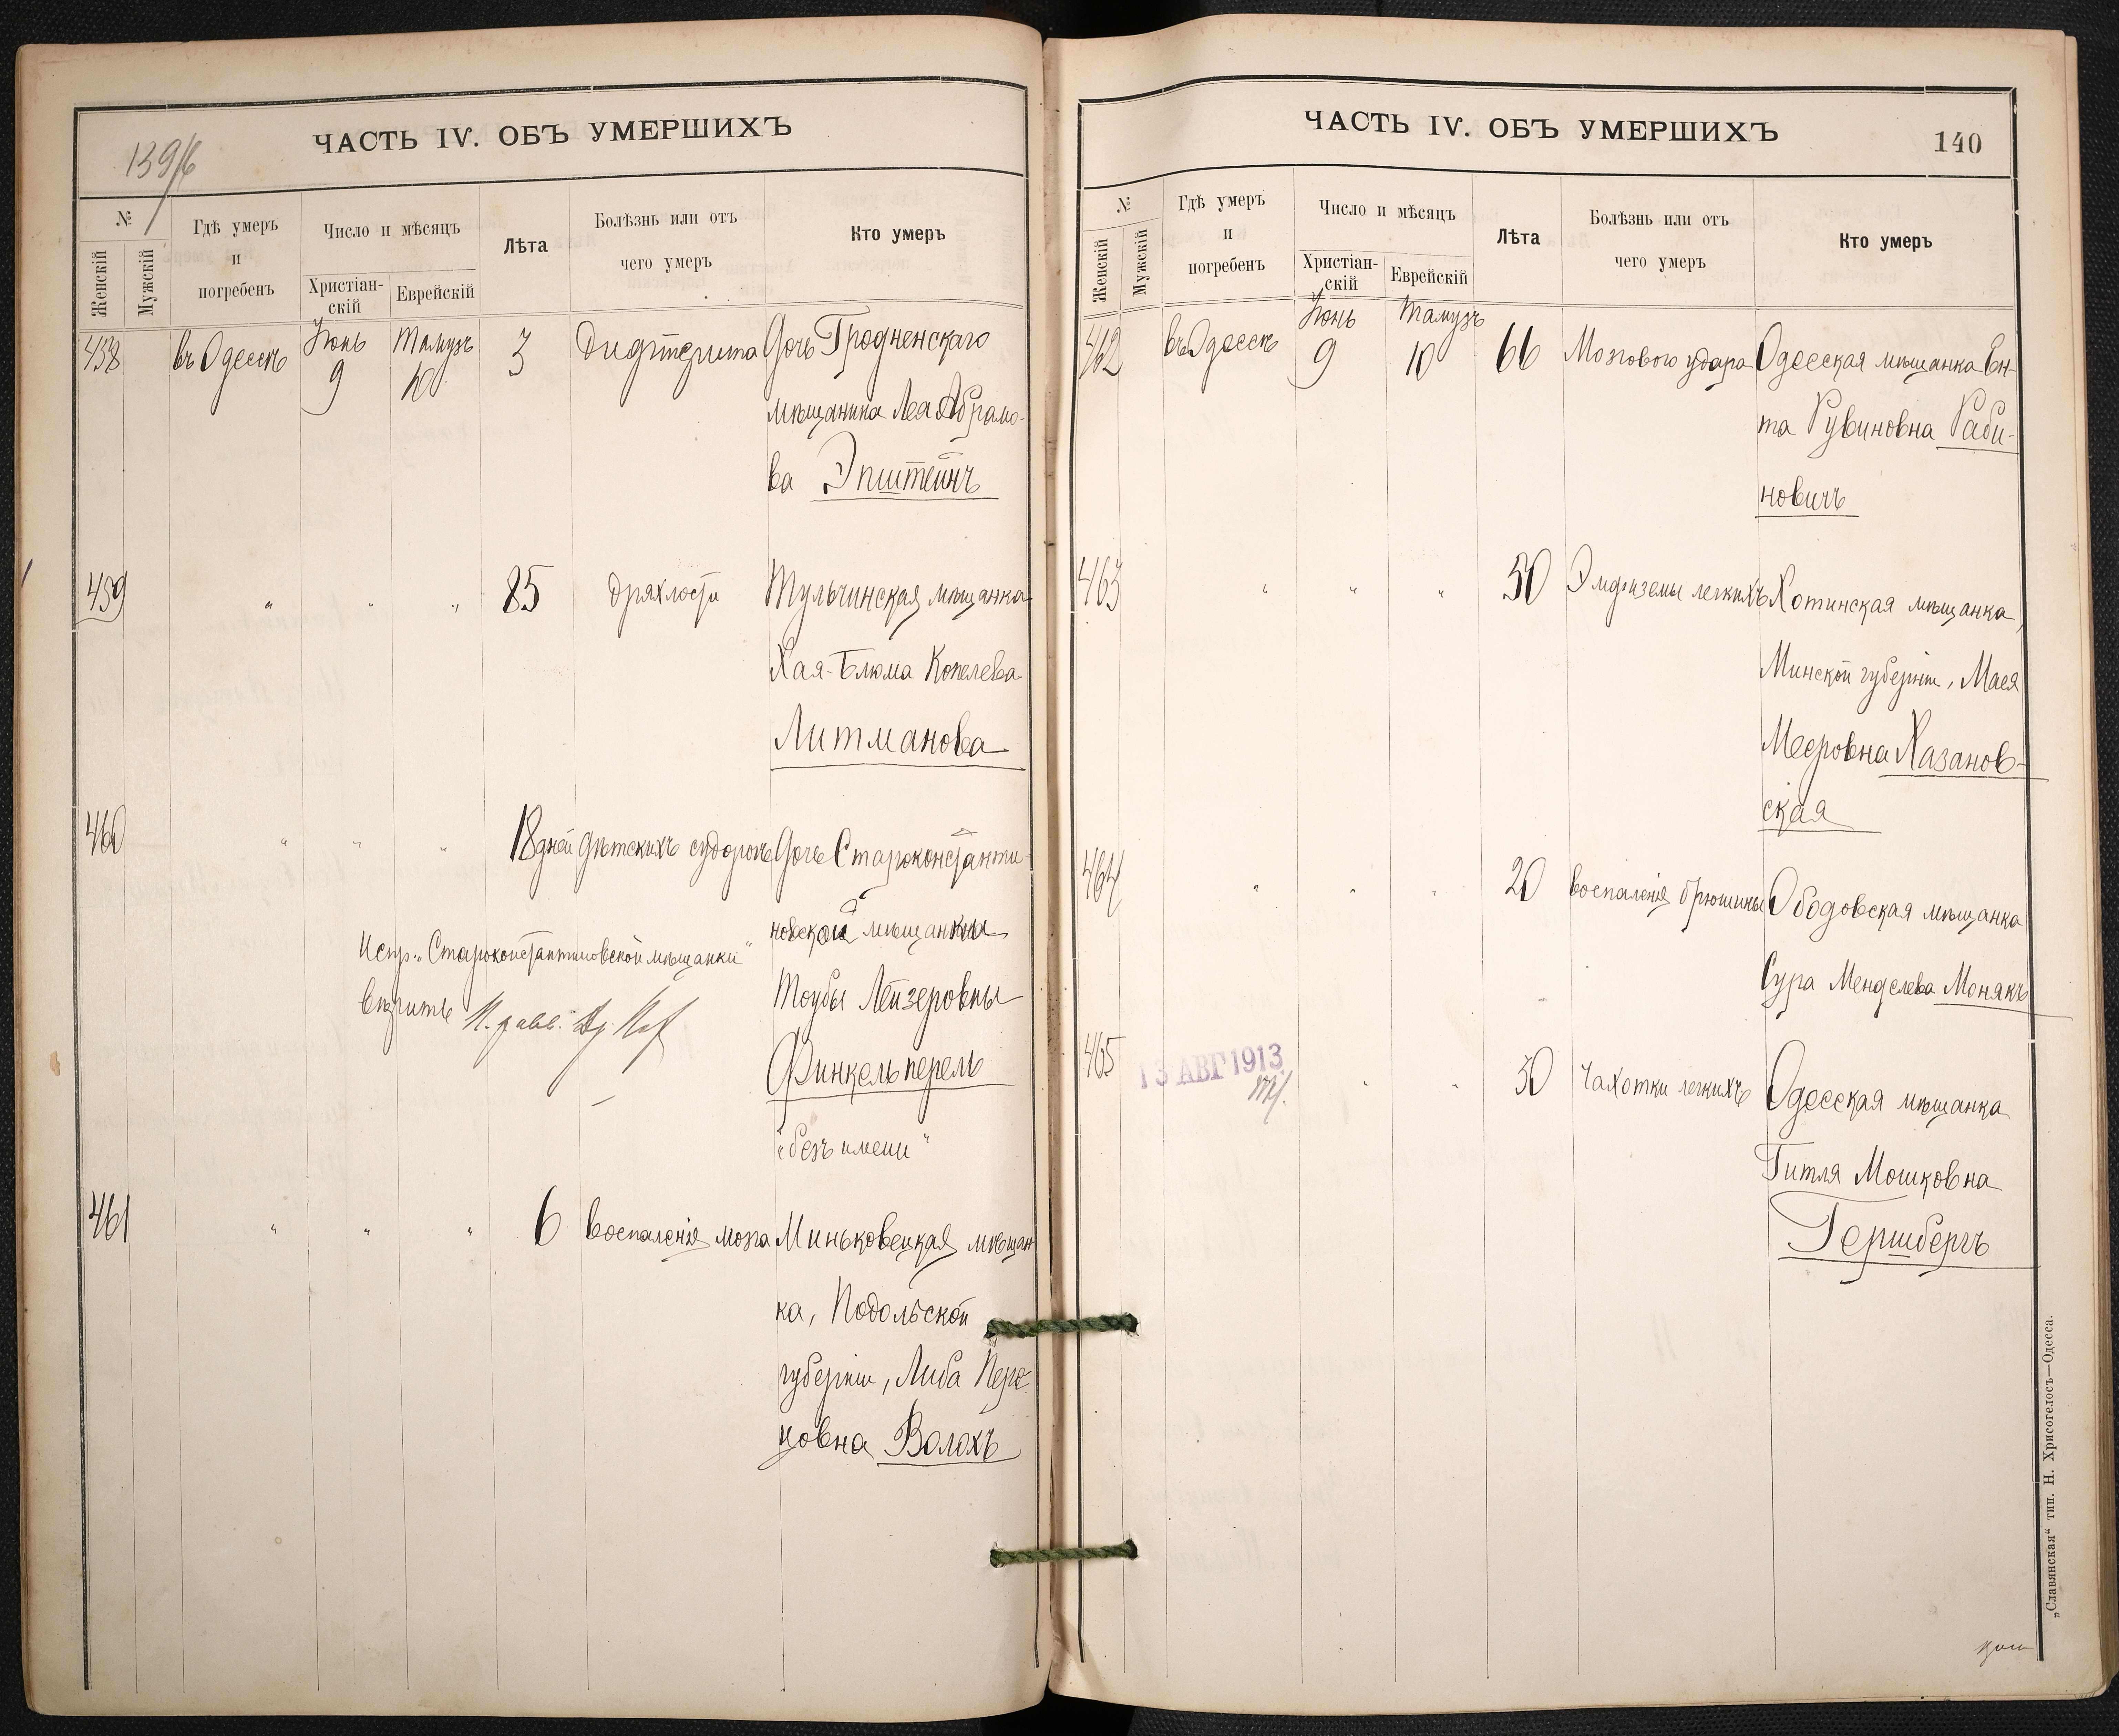 139/6
ЧАСТЬ IV. ОБЪ УМЕРШИХЪ
№
Женскій
Мужскій
Гдѣ умеръ
и
погребенъ
Число и мѣсяцъ
Христіан-
скій
Еврейскій
Лѣта
Болѣзнь или отъ
чего умеръ
Кто умеръ
458 въ Одессѣ Іюнь 9 Тамузъ 10 3 Дифтерита Дочь Гродненскаго
мѣщанина Леа Абрамо-
ва Эпштейнъ
459 " " " 85 дряхлости Тульчинская мѣщанка
Хая-Блюма Копелева
Литманова
460 " " " 18 дней дѣтскихъ судорогъ Дочь Староконстанти-
новской мѣщанки
Испр. "Староконстантиновской мѣщанки"
вѣрить
Тоубы Лейзеровны
Финкельперель
"безъ имени"
461 " " " 6 воспаленія мозга Миньковецкая мѣщан-
ка, Подольской
губерніи, Либа Перо-
цовна Волохъ
ЧАСТЬ IV. ОБЪ УМЕРШИХЪ
140
№
Женскій
Мужскій
Гдѣ умеръ
и
погребенъ
Число и мѣсяцъ
Христіан-
скій
Еврейскій
Лѣта
Болѣзнь или отъ
чего умеръ
Кто умеръ
462 въ Одессѣ Іюнь 9 Тамузъ 10 66 Мозгового удара Одесская мѣщанка Ен-
та Рувиновна Раби-
новичъ
463 " " " 50 Эмфиземы легкихъ Хотинская мѣщанка,
Минской губерніи, Мася
Меэровна Хазанов-
ская
464 " " " 20 воспаленія брюшины Ободовская мѣщанка
Сура Менделева Монякъ
465 13 АВГ 1913 " " 50 Чахотки легкихъ Одесская мѣщанка
Гитля Мошковна
Гершбергъ
„Славянская“ тип. Н. Хрисогелосъ—Одесса.